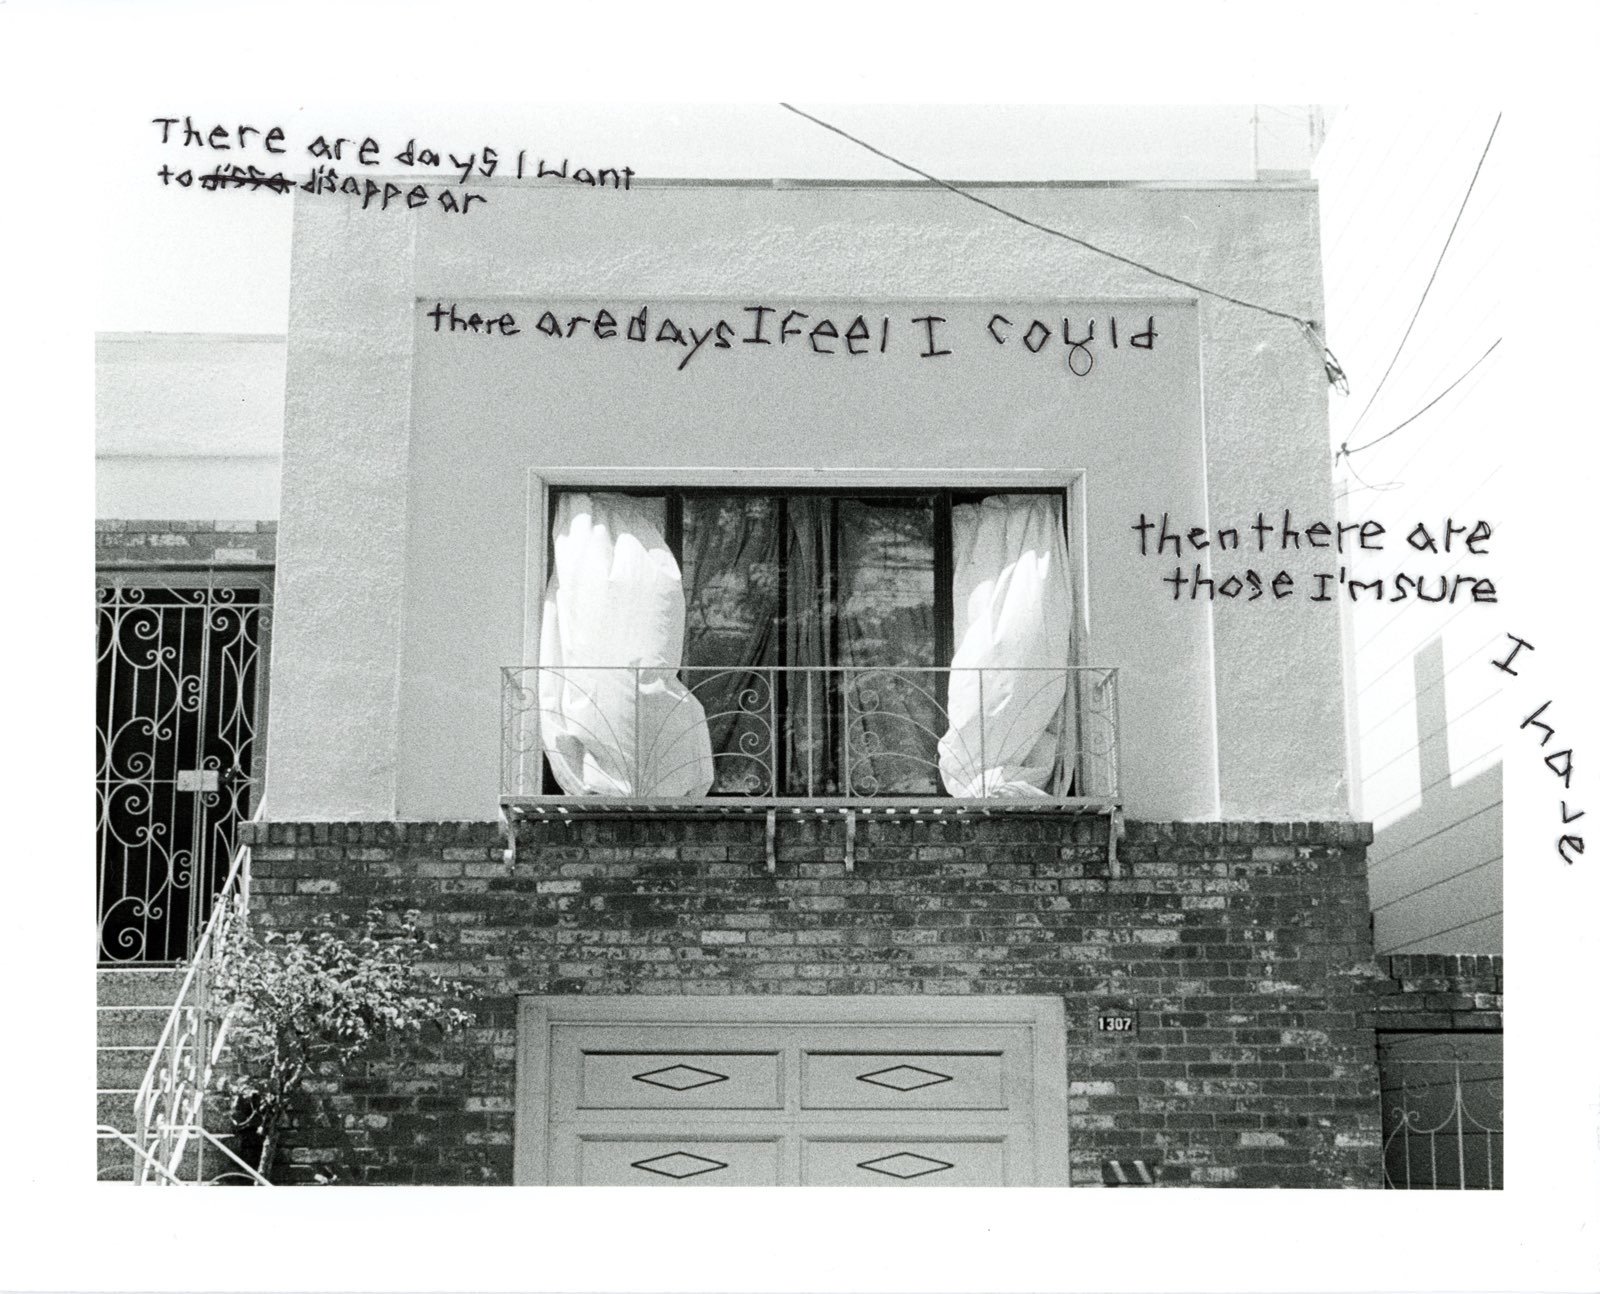 There are days I want
to dissa disappear
there are days I Feel I could
then there are
those I'm sure
I have
1307